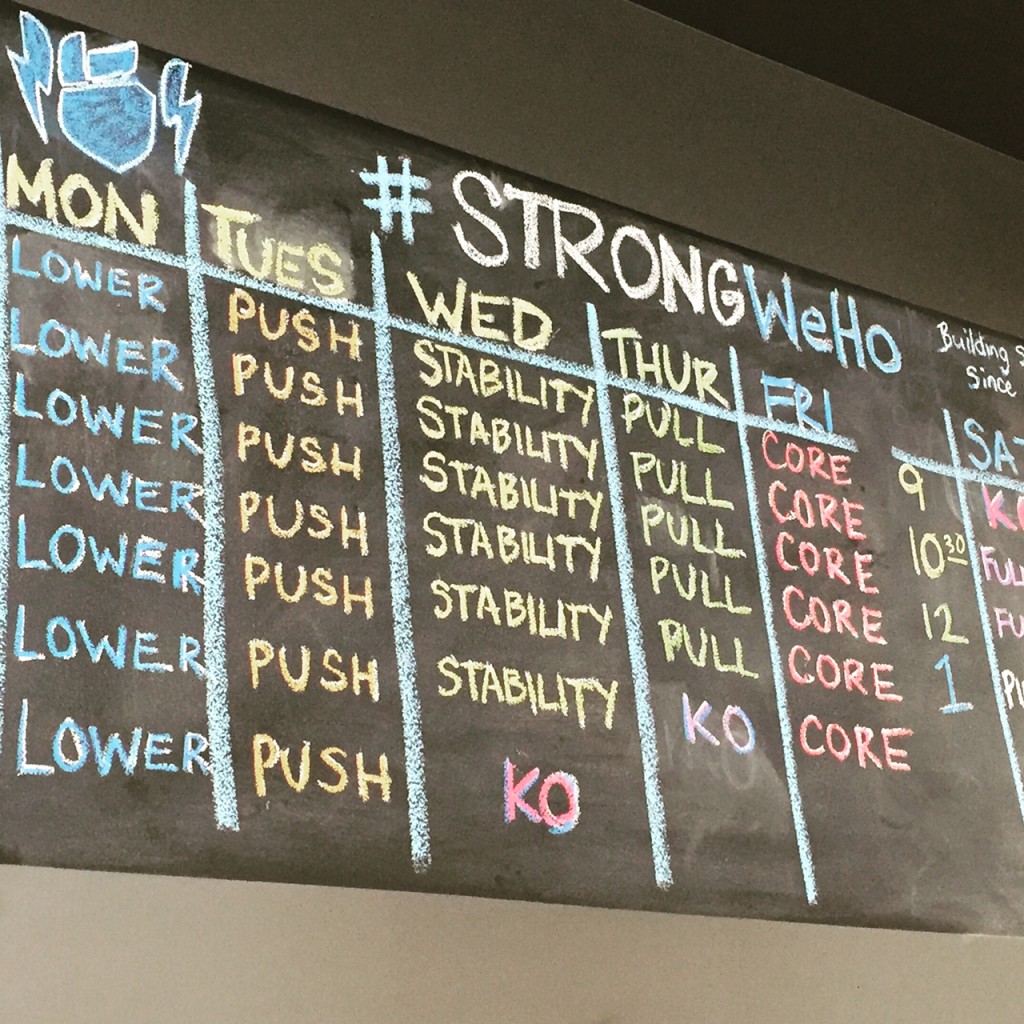 #STRONGWeHo
Building
Since
MON
LOWER
LOWER
LOWER
LOWER
LOWER
LOWER
LOWER
TUES
PUSH
PUSH
PUSH
PUSH
PUSH
PUSH
PUSH
WED
STABILITY
STABILITY
STABILITY
STABILITY
STABILITY
STABILITY
KO
THUR
PULL
PULL
PULL
PULL
PULL
KO
FRI
CORE
CORE
CORE
CORE
CORE
CORE
SAT
9 KO
10 30
12
1